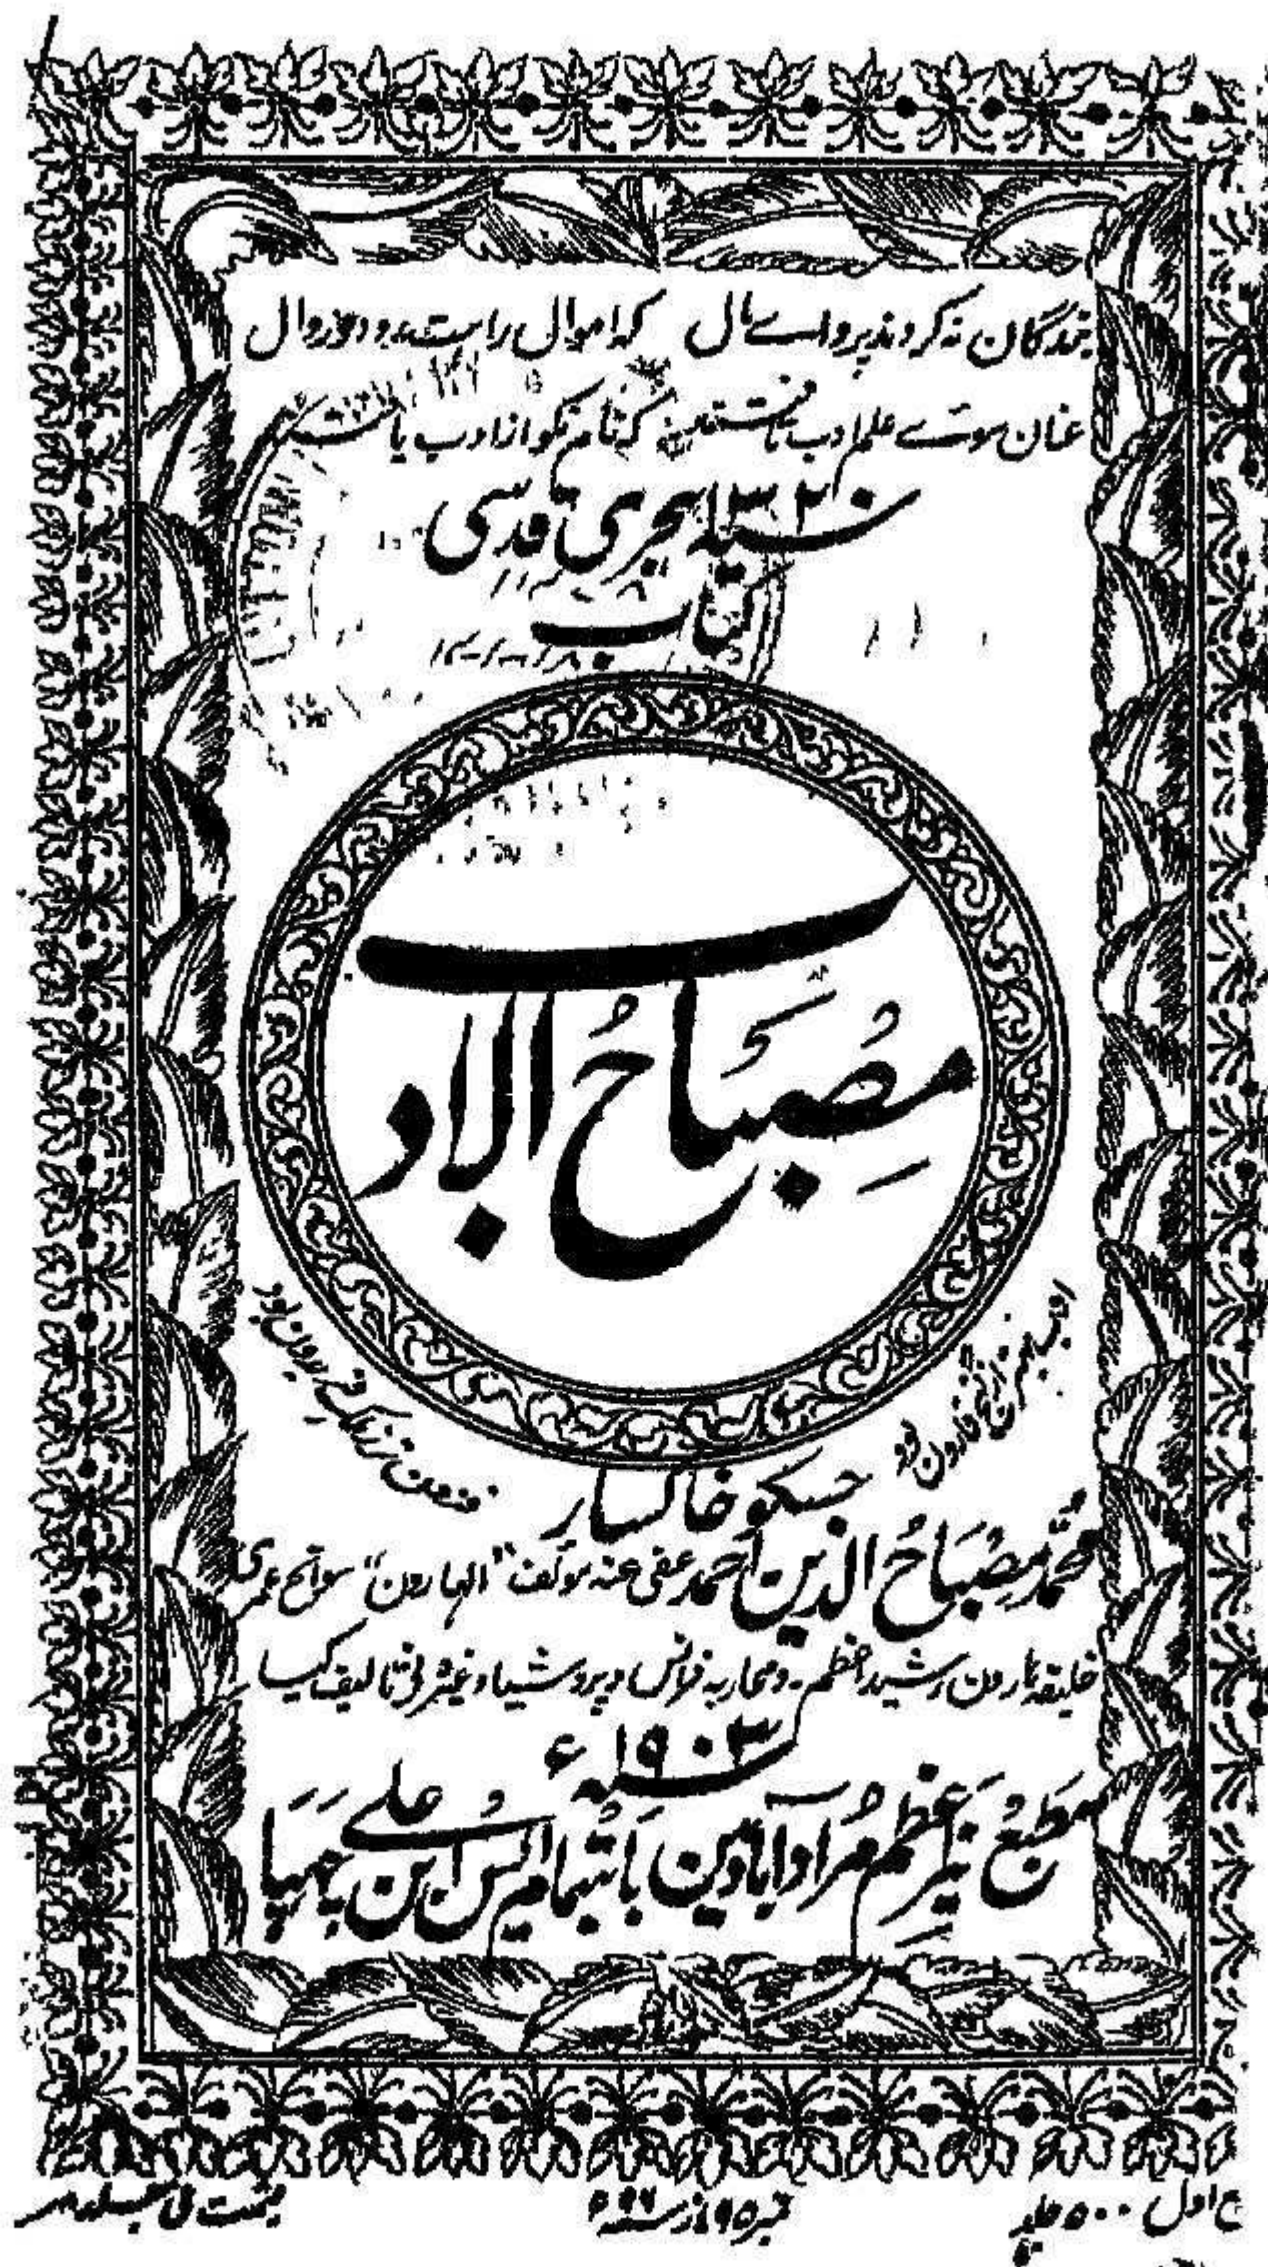 بزرگان نہ کردند پرواے مال کہ اموال راہست رو در زوال
عنان سوئے علم ادب تافتند کہ نام نکو از ادب یافتند
سنہ ۱۳۲۰ ہجری قدسی
کتاب
مِصْبَاحُ الادب
ادب بہتر از گنج قارون بود
فزون تر ز ملک فریدون بود
جسکو خاکسار
محمّد مِصْبَاحُ الدین احمد عفی عنہ مؤلف "الہارون" سوانح عمری
خلیفہ ہارون رشید اعظم۔ و محاربہ فرانس و پروشیا وغیرہ نے تالیف کیا
سنہ ۱۹۰۳ ء
مطبعُ نیّرِ اعظم مُرادآباد مین باہتمام ابن علی چھپا
ج اول ۵۰۰ جلد
نمبر ۹۵
قیمت فی جلد